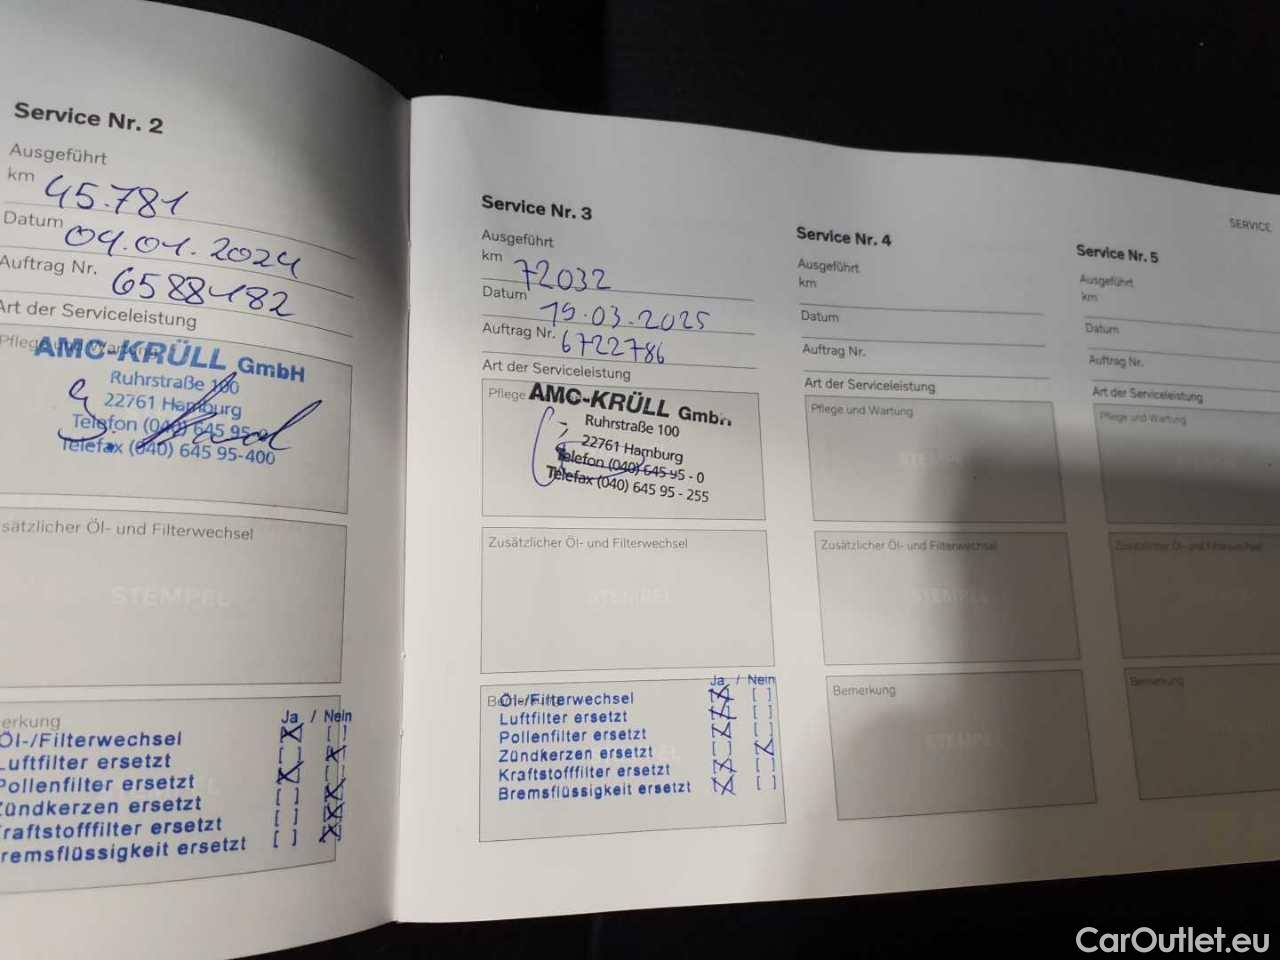 Service Nr. 2
Ausgeführt
km 45.781
Datum 04.01.2024
Auftrag Nr. 6588182
Art der Serviceleistung
AMC-KRÜLL GmbH
Ruhrstraße 100
22761 Hamburg
Telefon (040) 645 95
Telefax (040) 645 95-400
sätzlicher Öl- und Filterwechsel
STEMPEL
erkung
Ja / Nein
Öl-/Filterwechsel
Luftfilter ersetzt
Pollenfilter ersetzt
Zündkerzen ersetzt
raftstofffilter ersetzt
remsflüssigkeit ersetzt
Service Nr. 3
Ausgeführt
km 72032
Datum 19.03.2025
Auftrag Nr. 6722786
Art der Serviceleistung
Pflege
AMC-KRÜLL GmbH
Ruhrstraße 100
22761 Hamburg
Telefon (040) 645 95 - 0
Telefax (040) 645 95 - 255
Zusätzlicher Öl- und Filterwechsel
STEMPEL
Ja / Nein
Öl-/Filterwechsel
Luftfilter ersetzt
Pollenfilter ersetzt
Zündkerzen ersetzt
Kraftstofffilter ersetzt
Bremsflüssigkeit ersetzt
Service Nr. 4
Ausgeführt
km
Datum
Auftrag Nr.
Art der Serviceleistung
Pflege und Wartung
STEMPEL
Zusätzlicher Öl- und Filterwechsel
STEMPEL
Bemerkung
STEMPEL
SERVICE
Service Nr. 5
Ausgeführt
km
Datum
Auftrag Nr.
Art der Serviceleistung
Pflege und Wartung
Zusätzlicher Öl- und Filterwechsel
Bemerkung
CarOutlet.eu